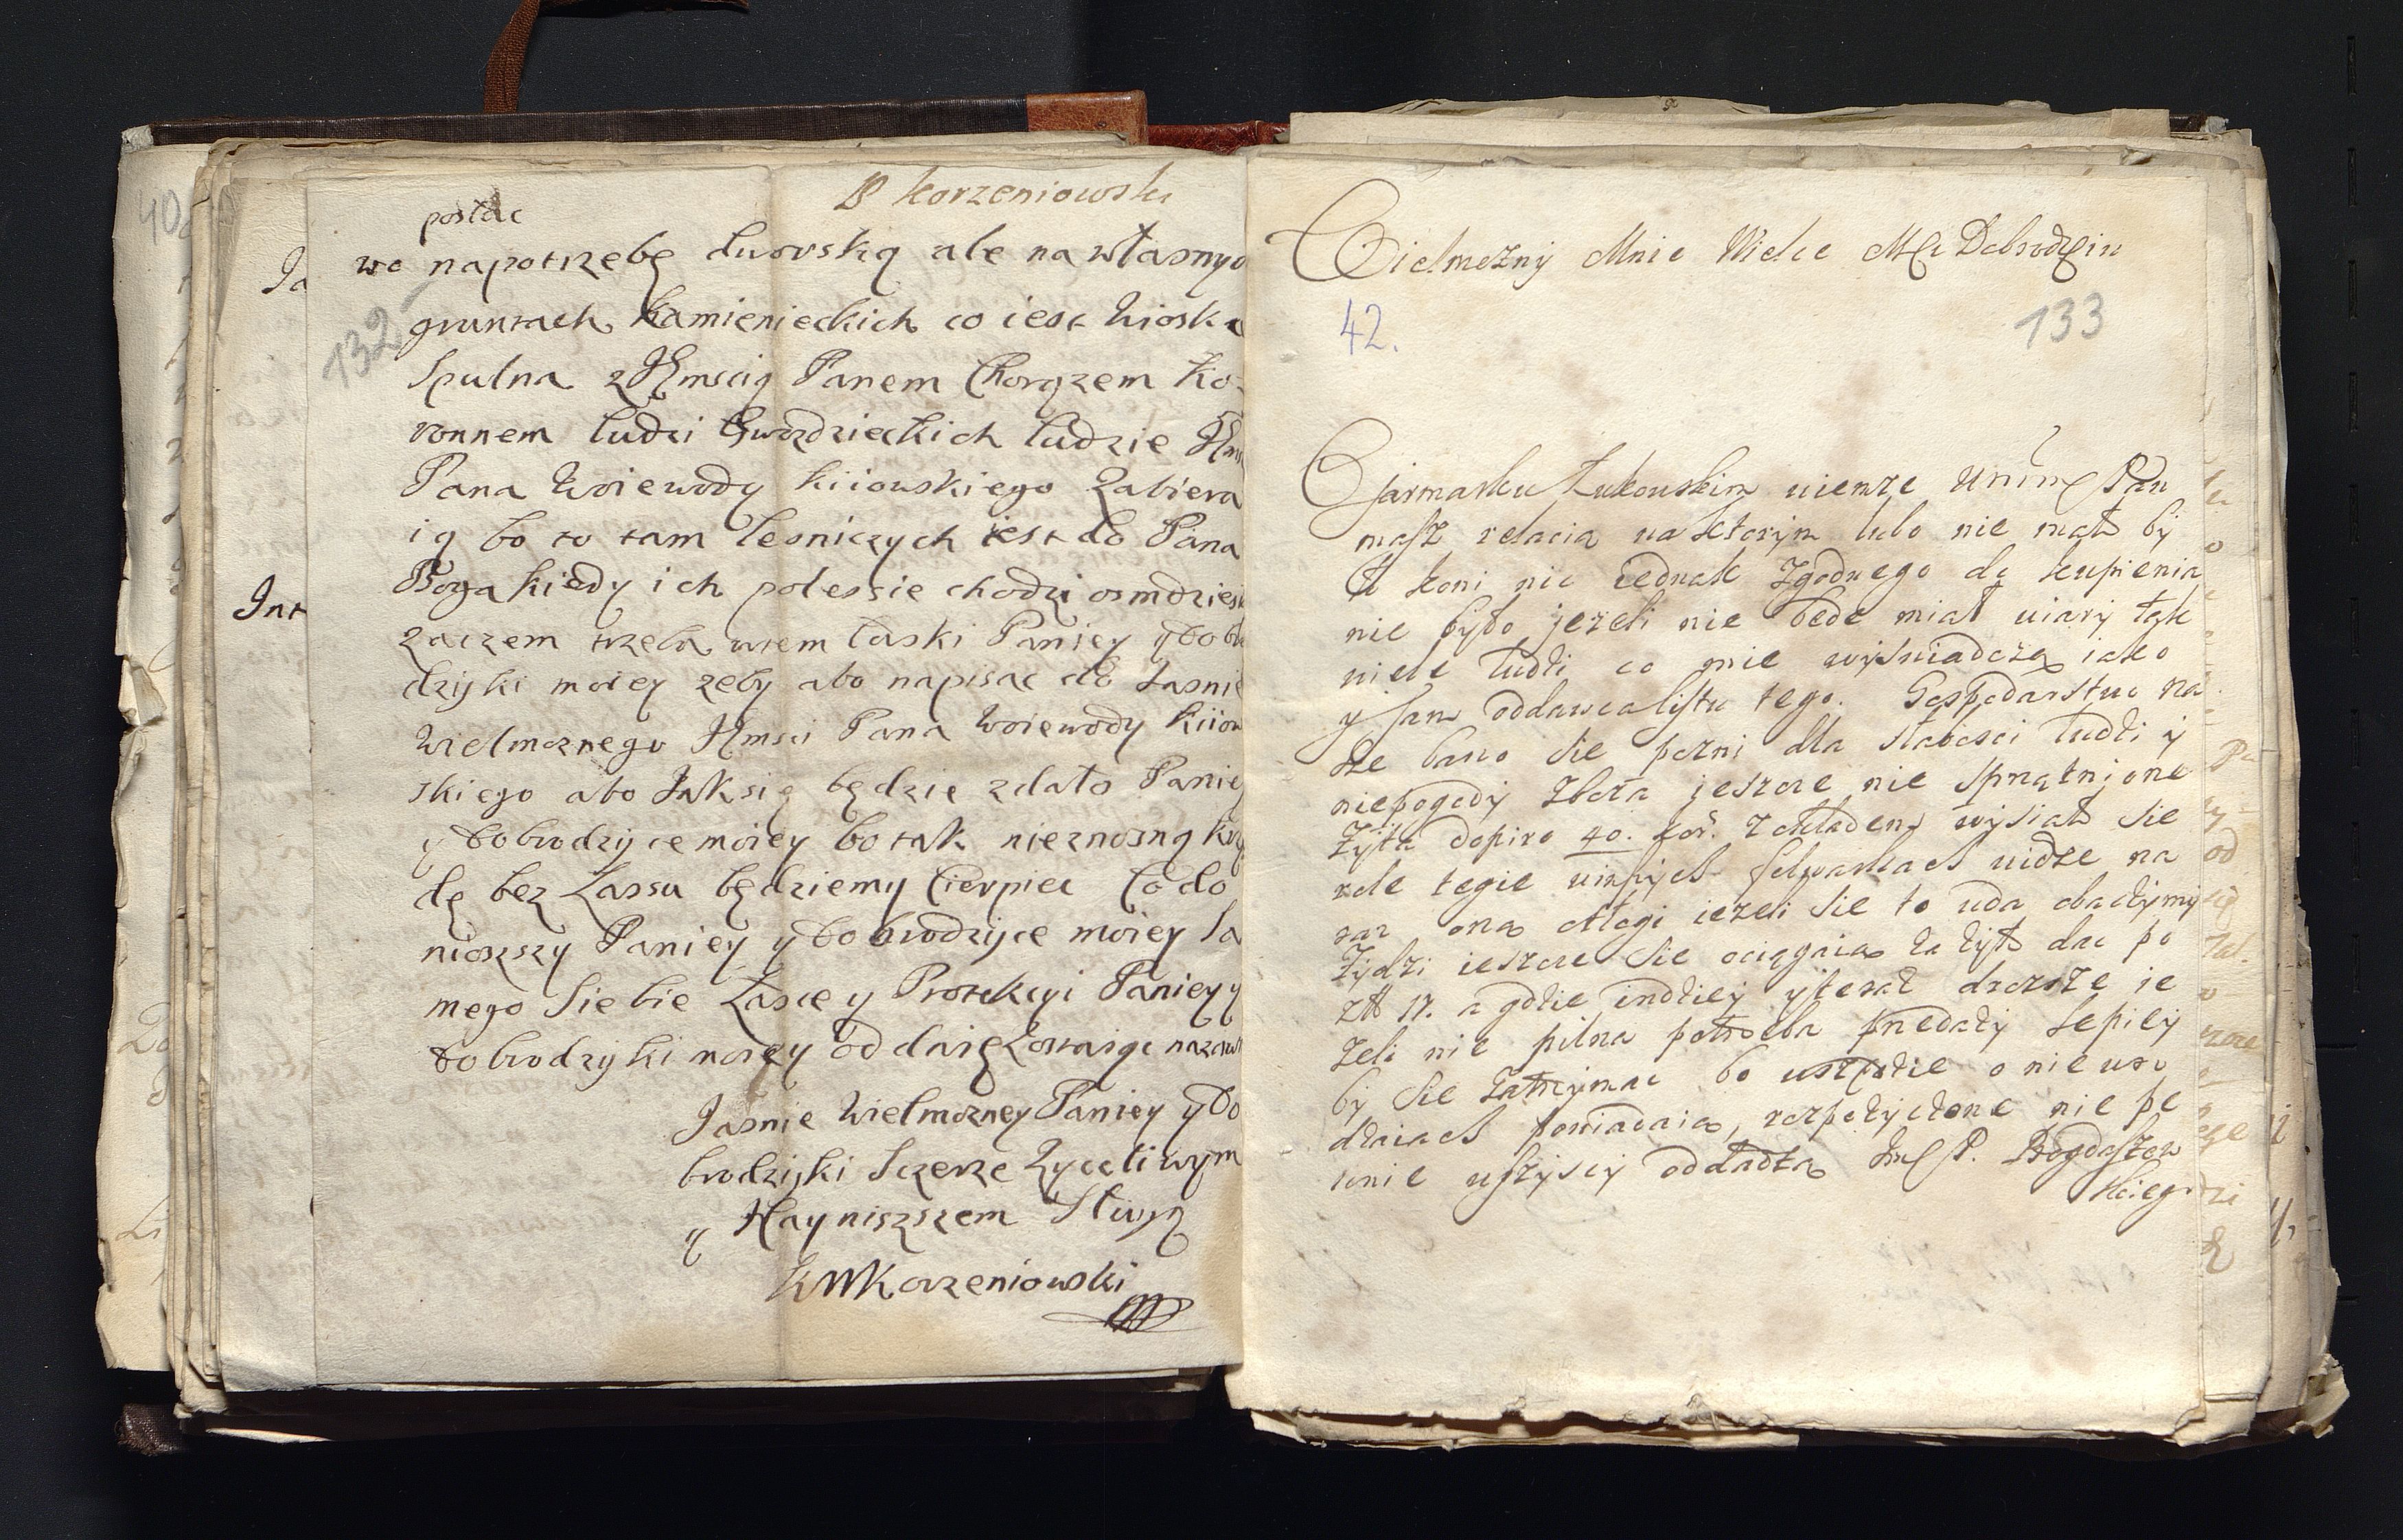 P korzeniowski
postac
wo napotrzebę dworską ale na własnyc
132
gruntach kamienieckich co iest wioska
Spulna z JEmscią Panem Chorązem Ko-
ronnem ludzi Gwozdzieckich ludzie JEms
Pana Woiewody kiiowskiego Zabiera
ią bo to tam lesniczych iest do Pana
Boga kiedy ich polessie chodzi osmdzies
zaczem trzeba wtem łaski Paniey y Dobro
dzijki moiey zeby abo napisac do Jasnie
Wielmoznego JEmsci Pana Woiewody Kiiow
skiego abo Jak się będzie zdało Paniey
y Dobrodzyce moiey bo tak nieznosną krzy
dę bez Lassu będziemy Cierpiec Co do
niozszy Paniey y Dobrodzijce moiey Sa
mego Siebie Łasce y Protekcyi Paniey y
Dobrodzijki moiey oddaię zostaiąc nazaw
Jasnie Wielmozney Paniey y Do
brodzijki Sczerze Zyczliwym
y Nayniszszem Sługą
KMKorzeniowski
Ja
Int
Wielmozny Mnie Wielce Mści Dobrodzeiu
42.
133
jarmarku Łukowskim Pan
masz relacią na ktorym lubo nie mało by
ło koni nic iednak Zgodnego do kupienia
nie było jezeli nie bede miał wiary tak
wiele ludzi co mie wyswiadczą iako
y sam oddawca listu tego. Gospodarstwo na
sze barzo sie pozni dla słabosci ludzi y
niepogody Zboza jeszcze nie sprzątnione
Zyta dopiro 40. kor. Zokładem wysiało sie
role tegie winych folwarkach widze na
ona Mogi iezeli sie to uda obaczymy
Zydzi ieszcze sie ociągaią za Zyto dac po
zł 17. a gdzie indziey ytera drozsze ie
zeli nie pilna potrzeba przedazy lepiey
by sie Zatrzymac bo wszędzie o nieuro
dzaiach powiadaią, rozpozyczone nie pe
wnie wszyscy oddadzą P. Bogdaszew
skiego